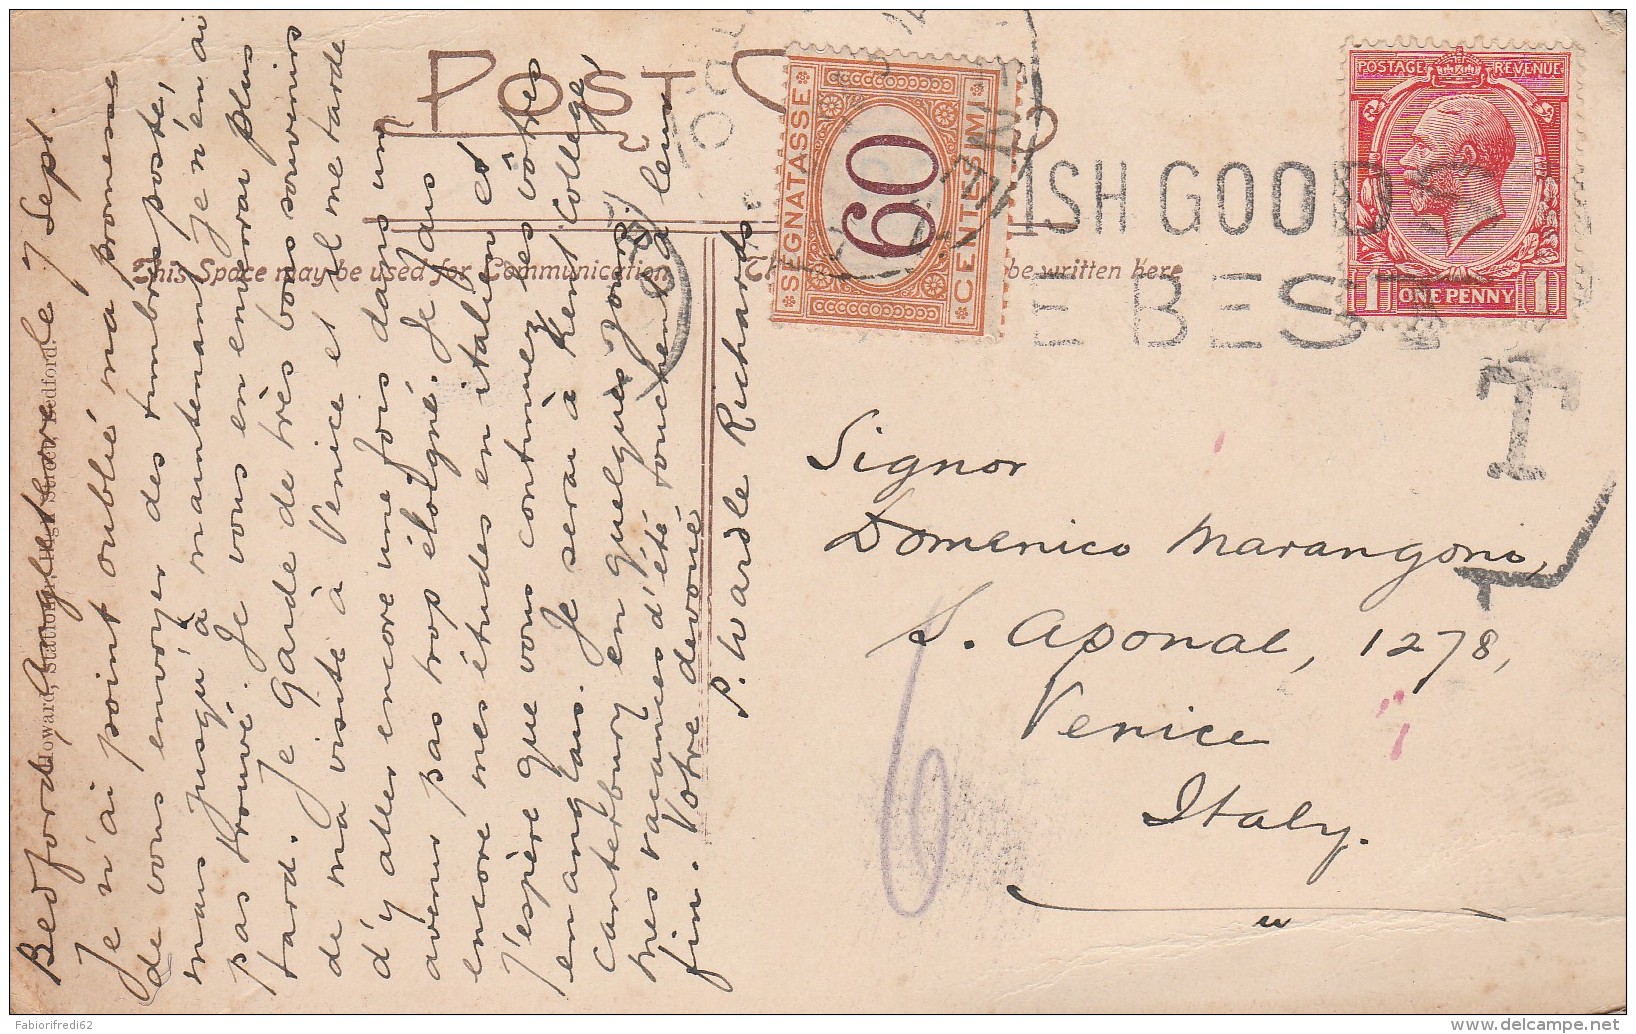 Bedford Angleterre le 7 Sept.
Je n'ai point oublié ma promesse
de vous envoyer des timbres poste,
mais jusqu'à maintenant je n'en ai
pas trouvé. Je vous en enverai plus
tard. Je garde de très bons souvenirs
de ma visite à Venice et il me tarde
d'y aller encore une fois dans un
avenir pas trop éloigné. Je fais
encore mes études en italien et
J'espère que vous continuez les vôtres
en anglais. Je serai à Kent College,
Canterbury en quelques jours.
mes vacances d'été touchent à leur
fin. Votre dévoué
P. Wardle Richards
Howard, Stationer, High Street, Bedford.
POST C
This Space may be used for Communication
be written here
SEGNATASSE
60
CENTESIMI
ISH GOOD
E BEST
POSTAGE REVENUE
1 ONE PENNY 1
T
Signor
Domenico Marangoni,
S. Aponal, 1278,
Venice
Italy.
6
Fabiorifredi62
delcampe.net